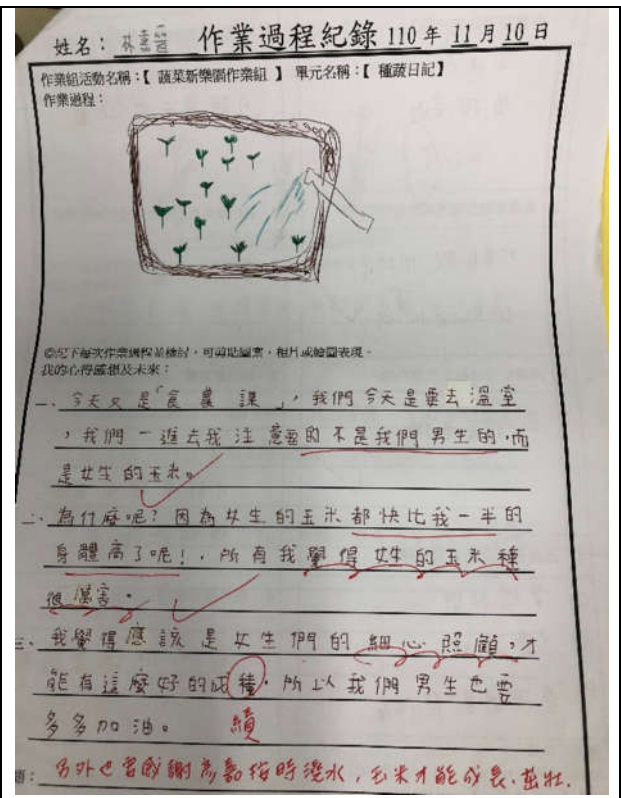 姓名：林 作業過程紀錄 110年 11月 10日
作業組活動名稱：【 蔬菜新樂園作業組 】 單元名稱：【 種蔬日記】
作業過程：
◎記下每次作業過程並檢討，可剪貼圖案，相片或繪圖表現。
我的心得感想及未來：
一、今天又是「食農課」，我們今天是要去溫室
，我們一進去我注意到的不是我們男生的，而
是女生的玉米。
二、為什麼呢？因為女生的玉米都快比我一半的
身體高了呢！，所有我覺得女生的玉米種
很厲害。
三、我覺得應該是女生們的細心照顧，才
能有這麼好的成種。所以我們男生也要
多多加油。 績
另外也要感謝 按時澆水，玉米才能成長、茁壯.